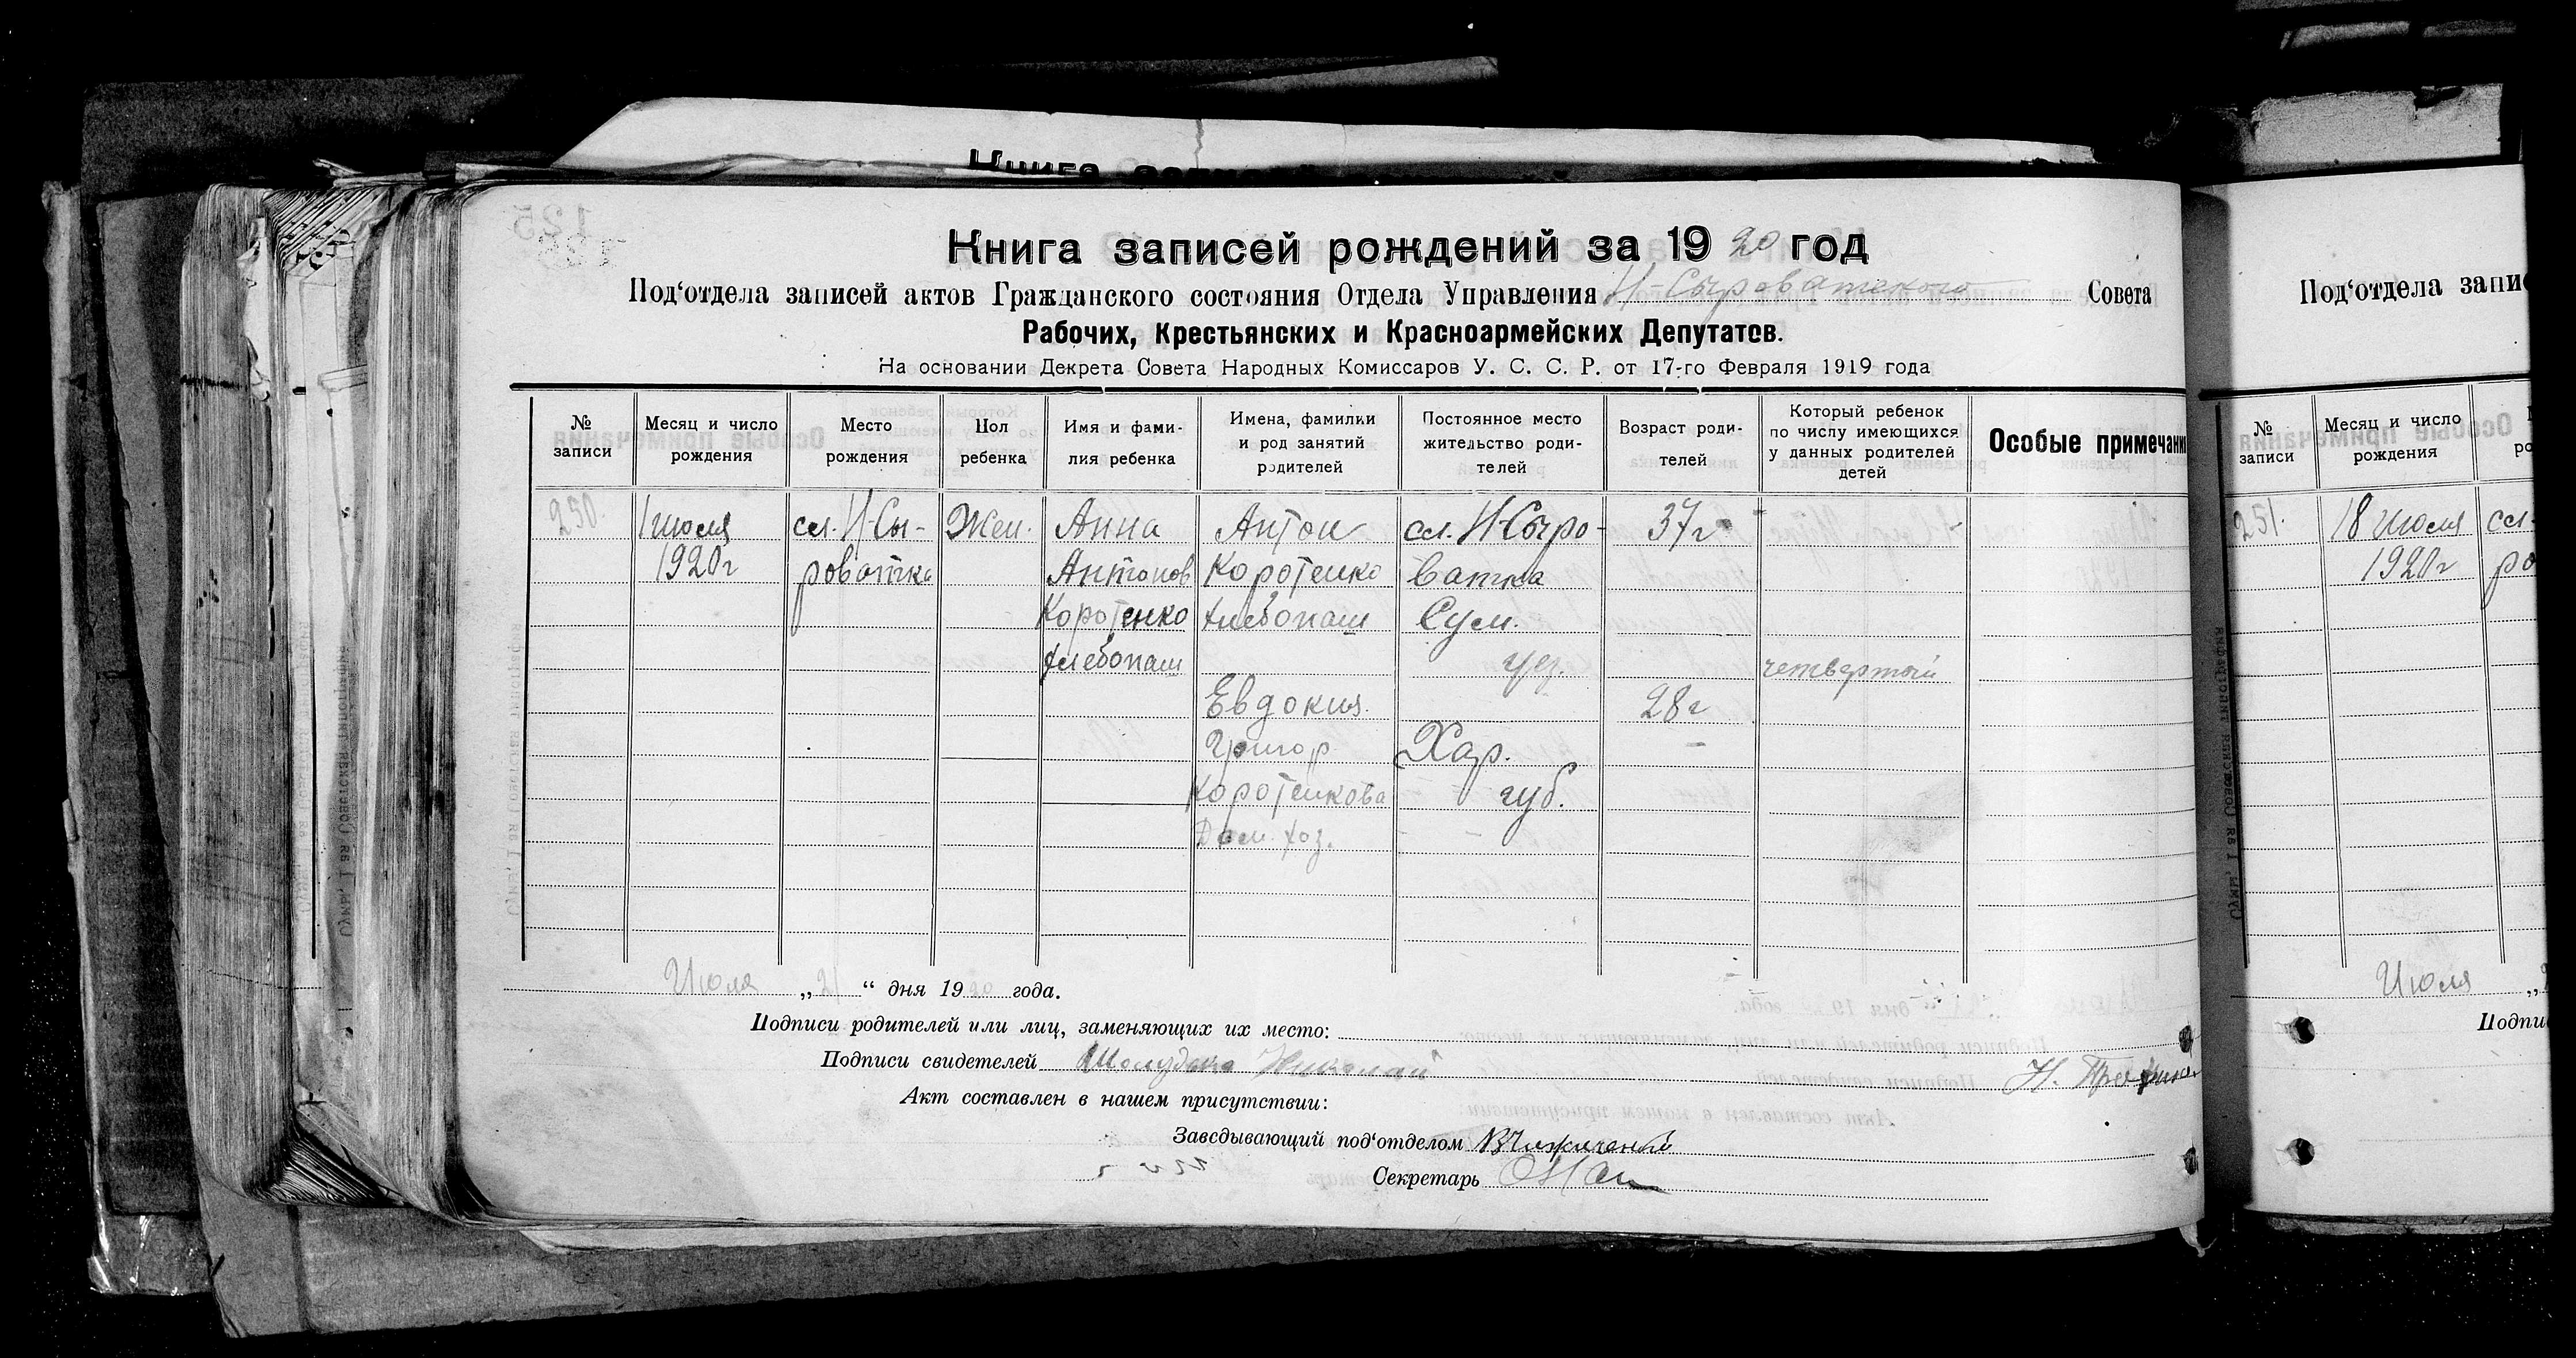 Книга записей рождений за 1920 год
Под‘отдела записей актов Гражданского состояния Отдела Управления Н-Сыроватского Совета
Рабочих, Крестьянских и Красноармейских Депутатов.
На основании Декрета Совета Народных Комиссаров У. С. С. Р. от 17-го Февраля 1919 года
№ записи
Месяц и число рождения
Место рождения
Пол ребенка
Имя и фамилия ребенка
Имена, фамилии и род занятий родителей
Постоянное место жительство родителей
Возраст родителей
Который ребенок по числу имеющихся у данных родителей детей
Особые примечани
250.
1 июля
1920г
сл. Н-Сы-
роватка
Жен.
Анна
Антонов
Коротенко
хлебопаш
Антон
Коротенко
хлебопаш
Евдокия
Григор
Коротенкова
Дом. хоз.
сл. Н-Сыро-
ватка
Сум.
уез.
Хар.
губ.
37г
28г
четвертый
Июля „21“ дня 1920 года.
Подписи родителей или лиц, заменяющих их место:
Подписи свидетелей Николай
Акт составлен в нашем присутствии:
Заведывающий под‘отделом
Секретарь
Под‘отдела запи
№ записи
Месяц и число рождения
251.
18 июля
1920г
сл.
ро
Июля
Подпи